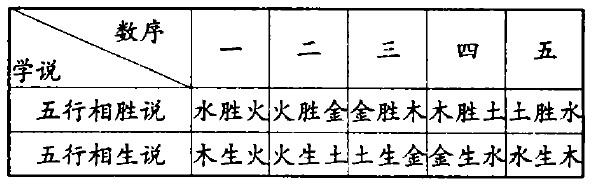 数序
学说
一 二 三 四 五
五行相胜说 水胜火 火胜金 金胜木 木胜土 土胜水
五行相生说 木生火 火生土 土生金 金生水 水生木